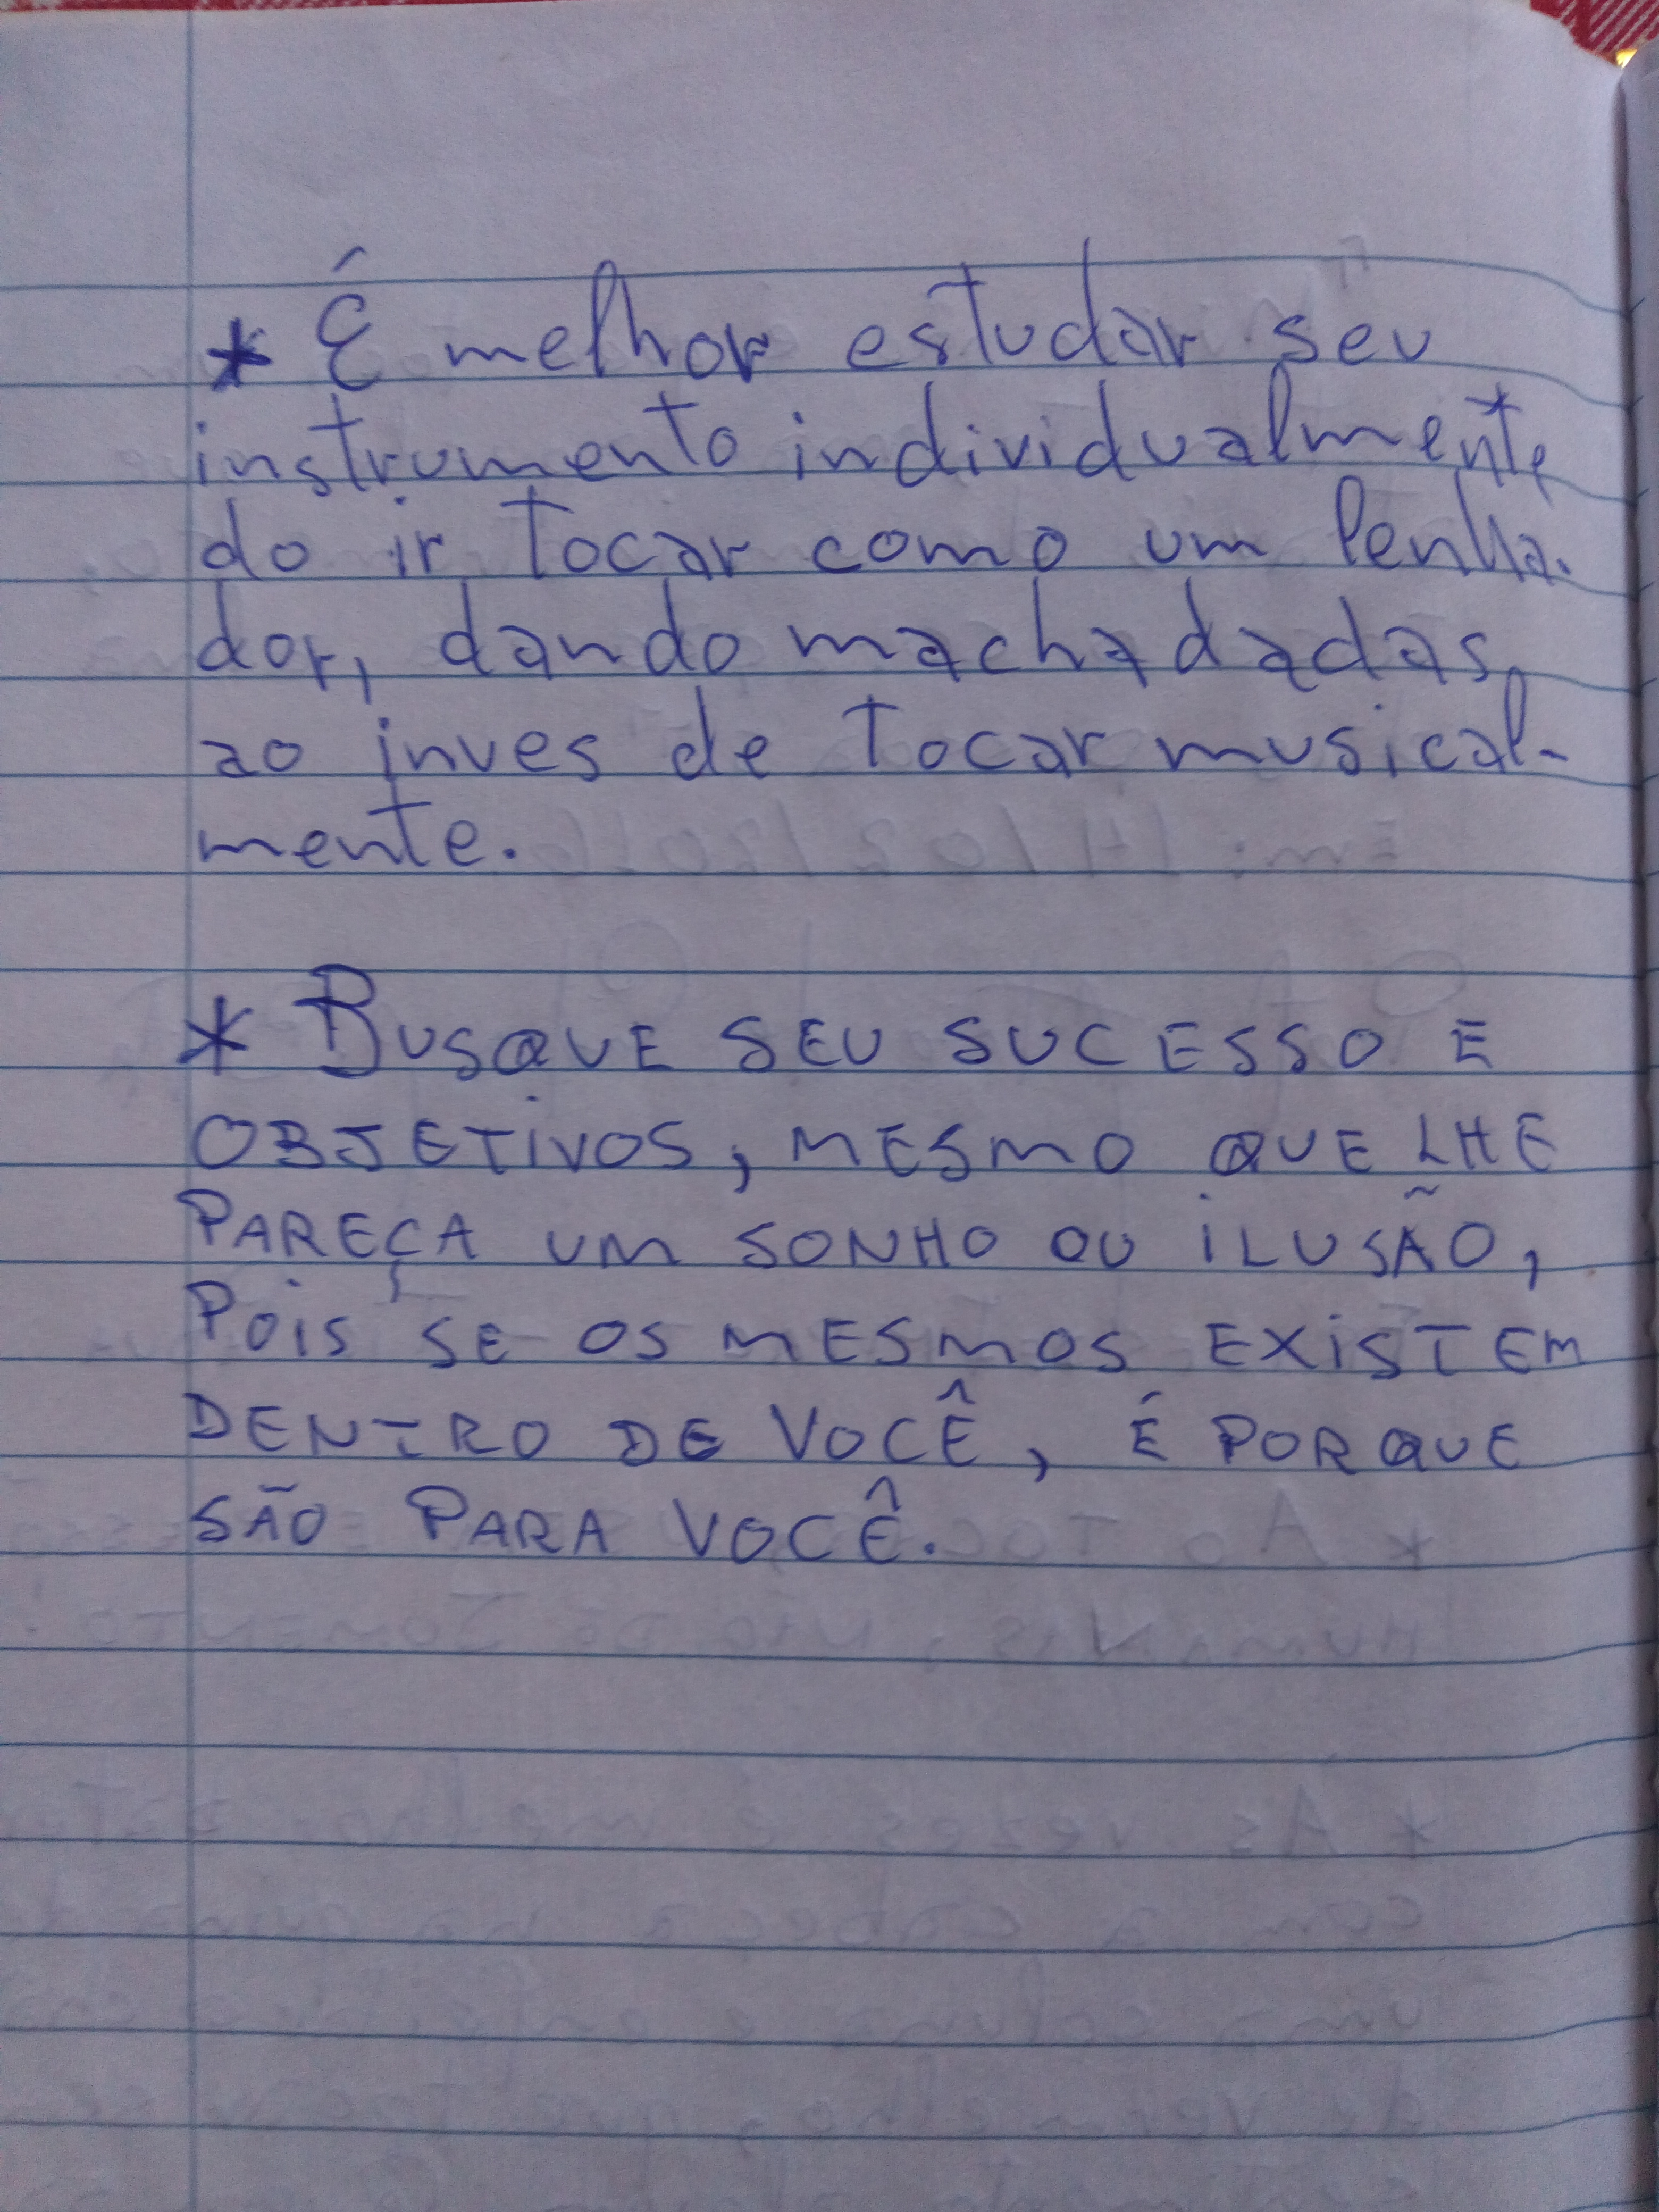 * É melhor estudar seu
instrumento individualmente
do ir tocar como um lenha-
dor, dando machadadas,
ao inves de tocar musical-
mente.
* BUSQUE SEU SUCESSO E
OBJETIVOS, MESMO QUE LHE
PAREÇA UM SONHO OU ILUSÃO,
POIS SE OS MESMOS EXISTEM
DENTRO DE VOCÊ, É PORQUE
SÃO PARA VOCÊ.